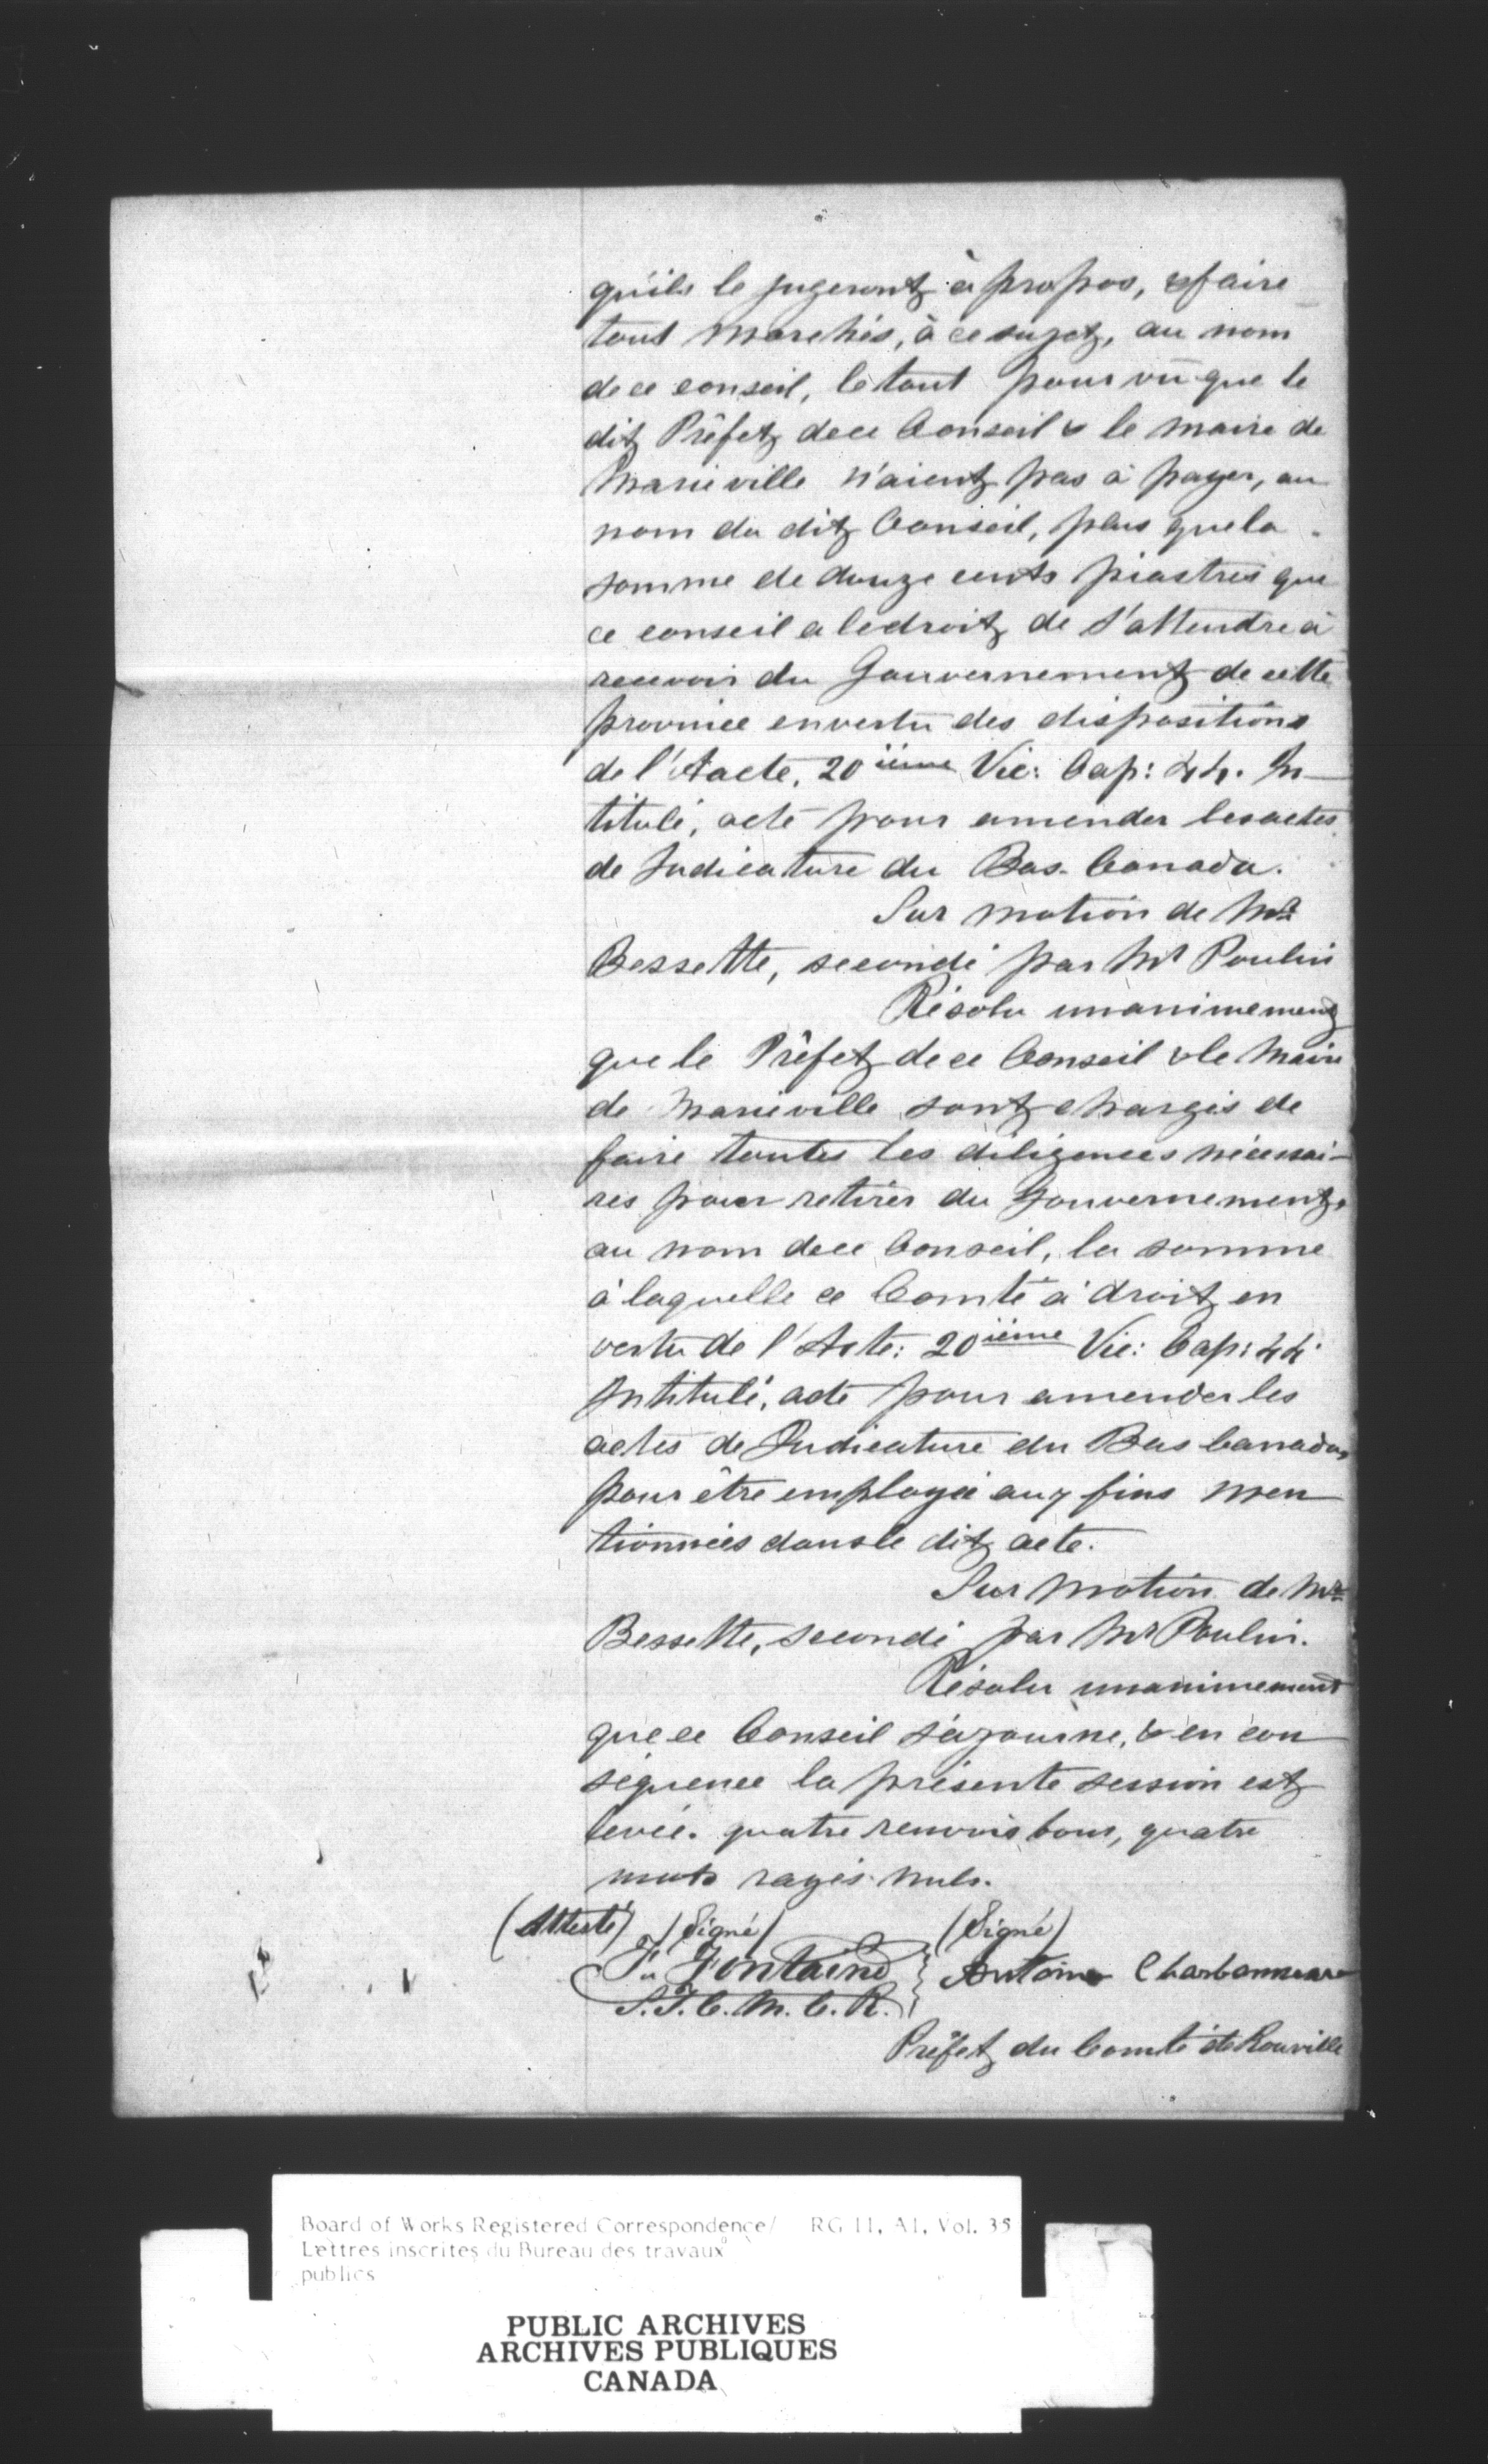 qu'ils le jugeront à propos, & faire
tout marchés, à ce sujet, au nom
de ce conseil, le tout pour vû que le
dit Préfet de ce Conseil & le maire de
Marieville n'aient pas à payer, au
nom du dit Conseil, plus que la
somme de douze cents piastres que
ce conseil a le droit de s'attendre à
recevoir du Gouvernement de cette
province en vertu des dispositions
de l'Acte, 20ième Vic: Cap: 44. In-
titulé, acte pour amender les actes
de Judicature du Bas-Canada.
Sur motion de Mr
Bessette, secondé par Mr Poulin
Résolu unanimement
que le Préfet de ce Conseil & le Maire
de Marieville sont chargés de
faire toutes les diligences nécessai-
res pour retirer du Gouvernement,
au nom de ce Conseil, la somme
à laquelle ce Comté à droit en
vertu de l'Acte: 20ième Vic: Cap: 44
Intitulé, acte pour amender les
actes de Judicature du Bas Canada,
pour être employée aux fins men
tionnées dans le dit acte.
Sur motion de Mr
Bessette, secondé par Mr Poulin.
Résolu unanimement
que ce Conseil s'ajourne, & en con
séquence la présente session est
levée. quatre renvois bons, quatre
mots rayés nuls.
(Attesté) (Signé) (Signé)
F. Fontaine } Antoine Charbonneau
S.T.C.M.C.R.
Préfet du Comté de Rouville
Board of Works Registered Correspondence/ RG 11, A1, Vol. 35
Lettres inscrites du Bureau des travaux
publics
PUBLIC ARCHIVES
ARCHIVES PUBLIQUES
CANADA